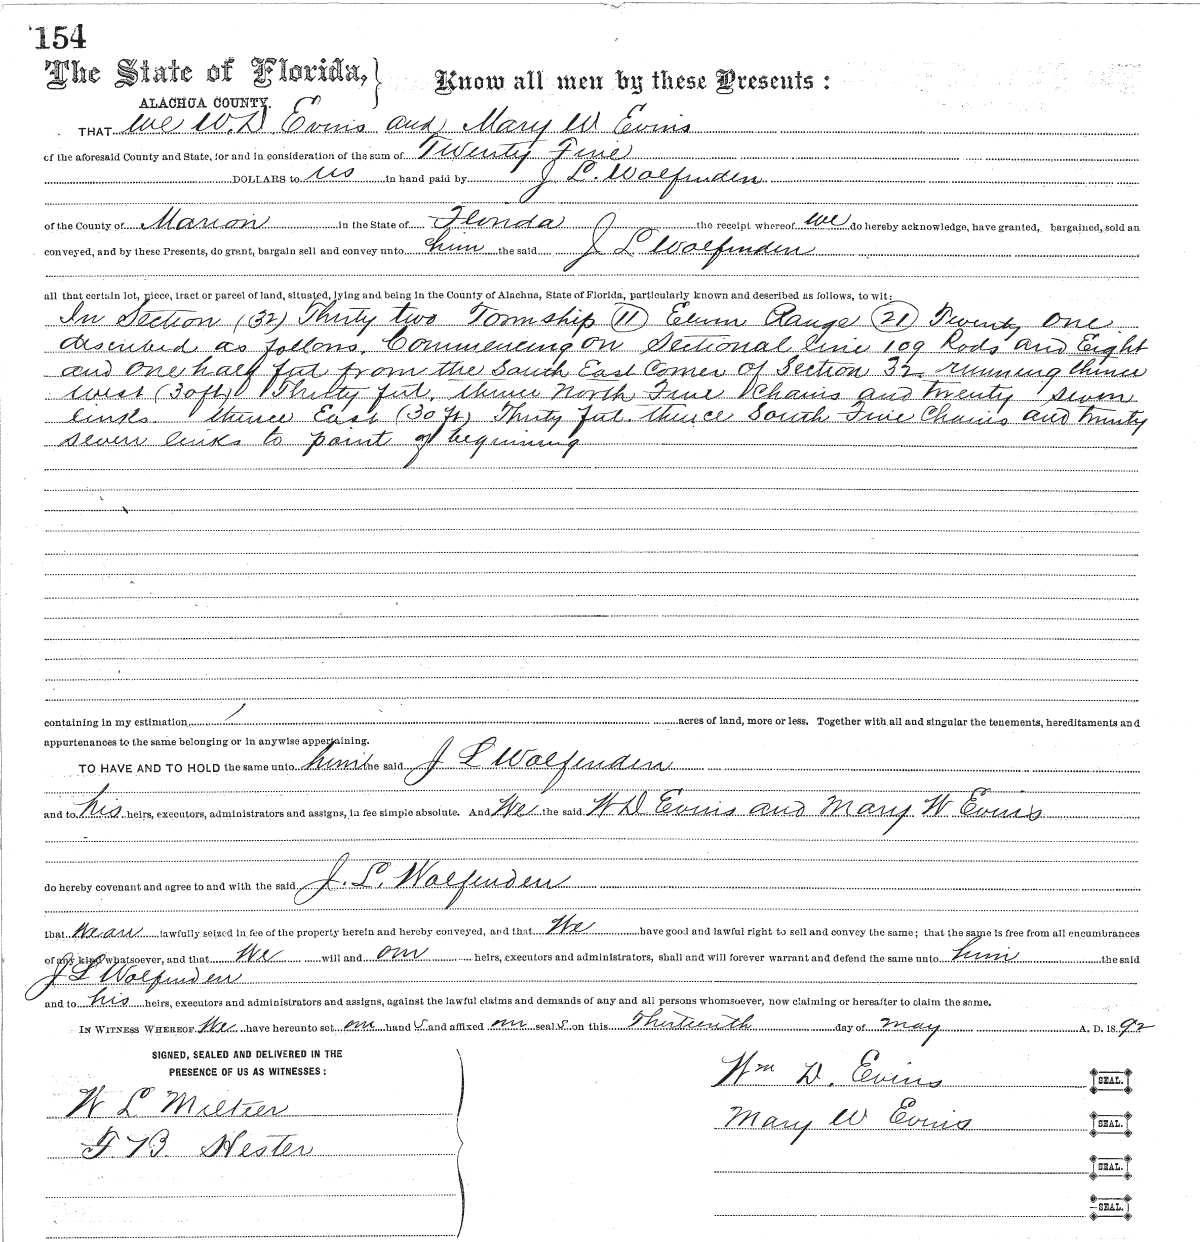 154
The State of Florida,} Know all men by these Presents:
ALACHUA COUNTY.
THAT We W. D Evins and Mary W Evins
of the aforesaid County and State, for and in consideration of the sum of Twenty Five
DOLLARS to us in hand paid by J L. Wolfenden
of the County of Marion in the State of Florida the receipt whereof we do hereby acknowledge, have granted, bargained, sold an
conveyed, and by these Presents, do grant, bargain sell and convey unto him the said J L Wolfenden
all that certain lot, piece, tract or parcel of land, situated, lying and being in the County of Alachua, State of Florida, particularly known and described as follows, to wit:
In Section (32) Thirty two Township (11) Eleven Range (21) Twenty One
described as follows. Commencing on Sectional line 109 Rods and Eight
and one half feet from the South East Corner of Section 32 running thence
west (30ft) Thirty feet. thence North Five Chains and twenty seven
links. thence East (30 ft) Thirty feet. thence South Five Chains and twenty
seven links to point of beginning
containing in my estimation acres of land, more or less. Together with all and singular the tenements, hereditaments and
appurtenances to the same belonging or in anywise appertaining.
TO HAVE AND TO HOLD the same unto him the said J L Wolfenden
and to his heirs, executors, administrators and assigns, in fee simple absolute. And We the said W D Evins and Mary W Evins
do hereby covenant and agree to and with the said J. L. Wolfenden
that We are lawfully seized in fee of the property herein and hereby conveyed, and that We have good and lawful right to sell and convey the same; that the same is free from all encumbrances
of any kind whatsoever, and that We will and our heirs, executors and administrators, shall and will forever warrant and defend the same unto him the said
J L Wolfenden
and to his heirs, executors and administrators and assigns, against the lawful claims and demands of any and all persons whomsoever, now claiming or hereafter to claim the same.
IN WITNESS WHEREOF We have hereunto set our hand s and affixed our seal s on this Thirteenth day of May A. D. 18 92
SIGNED, SEALED AND DELIVERED IN THE
PRESENCE OF US AS WITNESSES:
Wm D. Evins SEAL.
W L Miltier
Mary W Evins SEAL.
F B. Hester
SEAL.
SEAL.